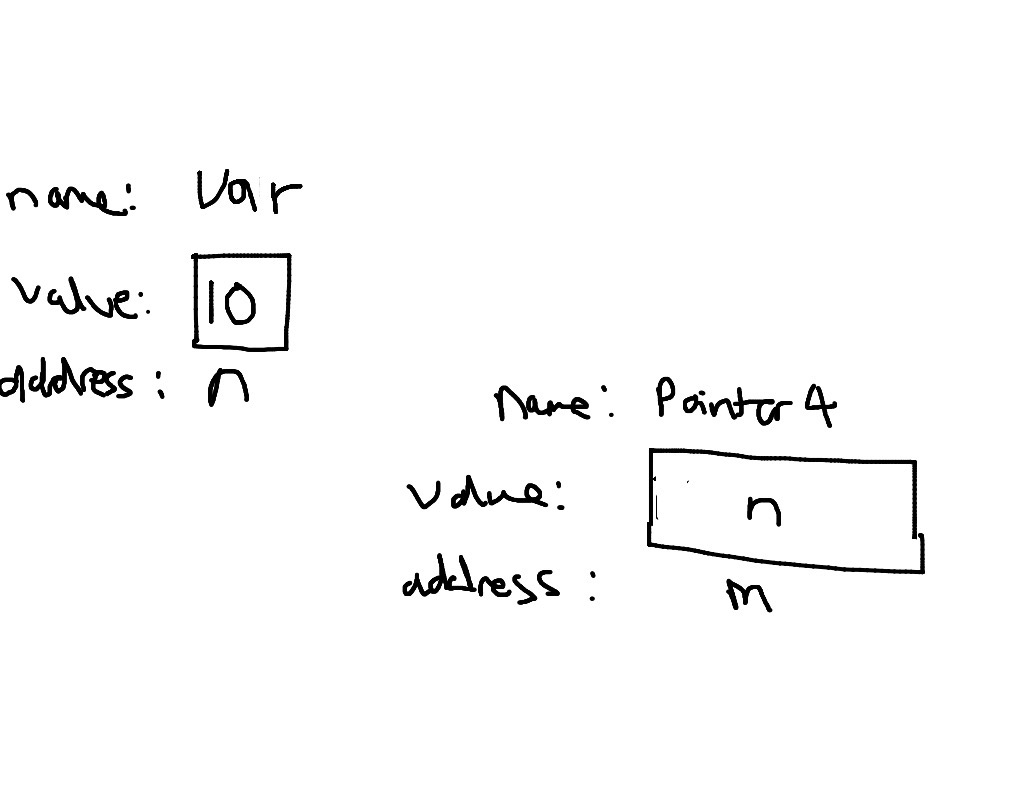 name: Var
value: 10
address: n
Name: Pointer 4
value: n
address: m